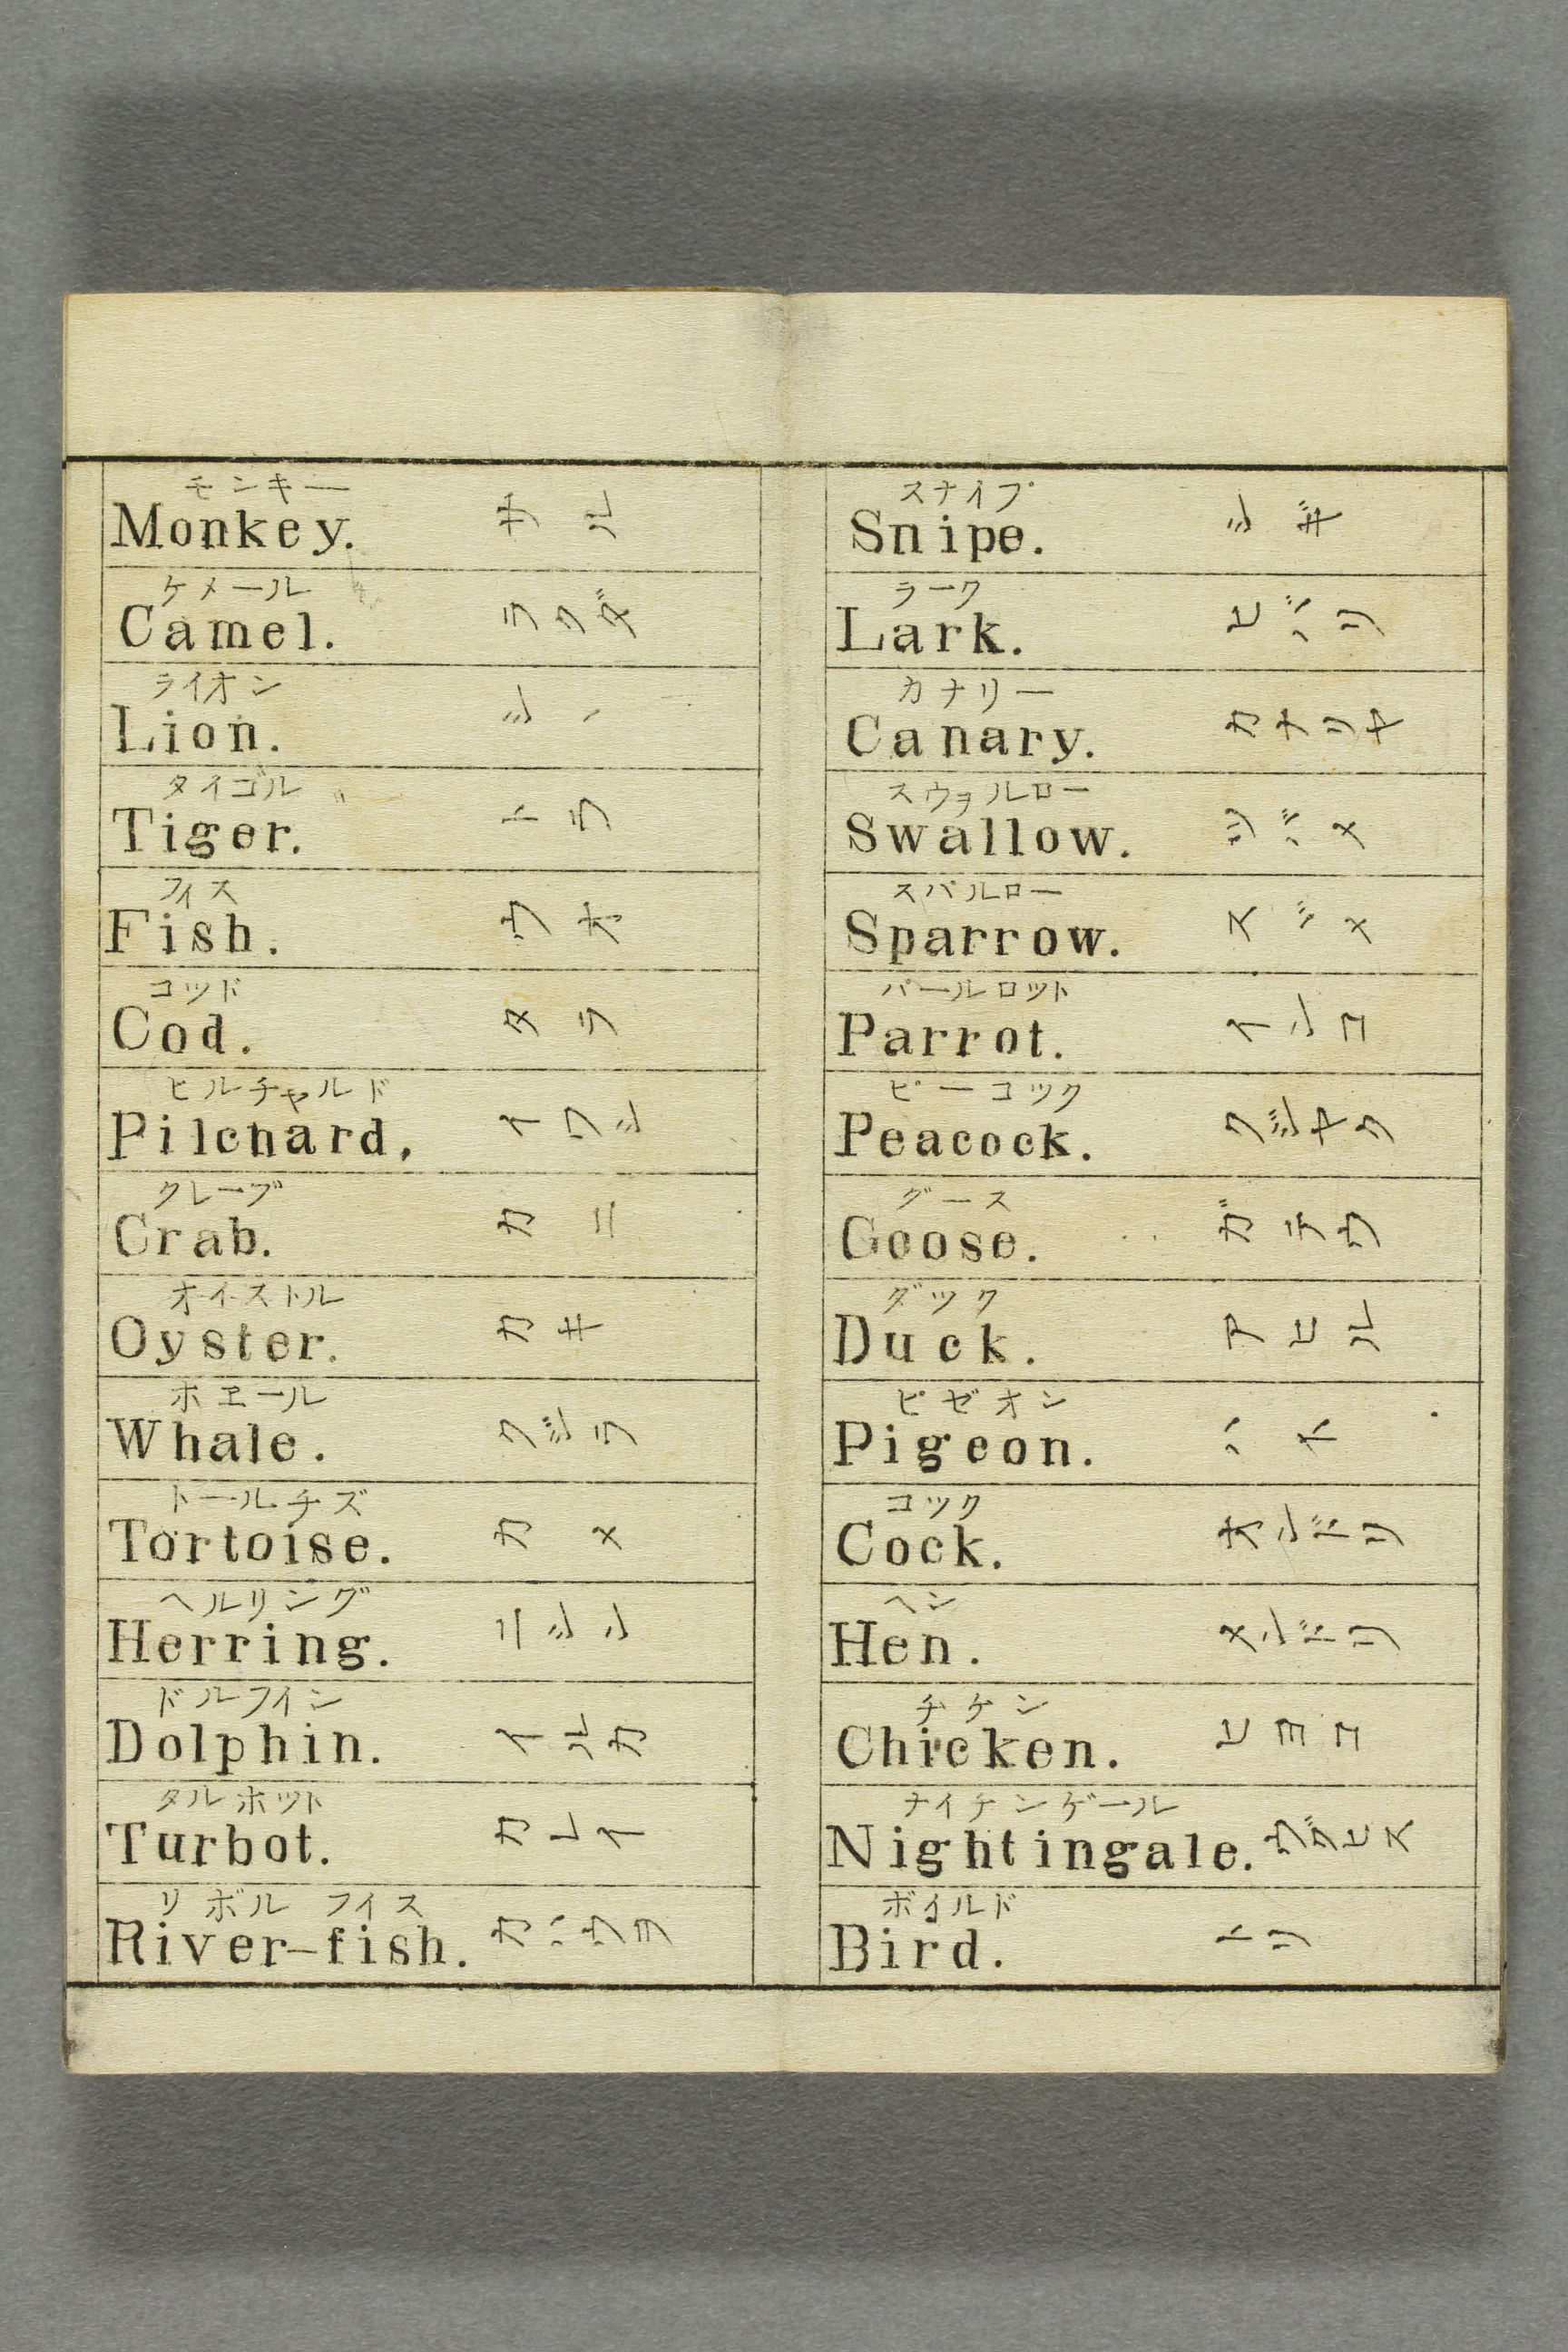 モンキー
Monkey. サル
ケメール
Camel. ラクダ
ライオン
Lion. シヽ
タイゴル
Tiger. トラ
フイス
Fish. ウオ
コツド
Cod. タラ
ヒルチヤルド
Pilcnard, イワシ
クレーブ
Crab. カニ
オイストル
Oyster. カキ
ホヱール
Whale. クジラ
トールチズ
Tortoise. カメ
ヘルリング
Herring. ニシン
ドルフイン
Dolphin. イルカ
タルホツト
Turbot. カレイ
リボル フイス
River-fish. カハウヲ
スナイプ
Snipe. シギ
ラーク
Lark. ヒバリ
カナリー
Canary. カナリヤ
スウヲルロー
Swallow. ツバメ
スパルロー
Sparrow. スヾメ
パールロツト
Parrot. インコ
ピーコツク
Peacock. クジヤク
グース
Goose. ガテウ
ダツク
Duck. アヒル
ピゼオン
Pigeon. ハト
コツク
Cock. オンドリ
ヘン
Hen. メンドリ
チケン
Chicken. ヒヨコ
ナイチンゲール
Nightingale. ウグヒス
ボイルド
Bird. トリ